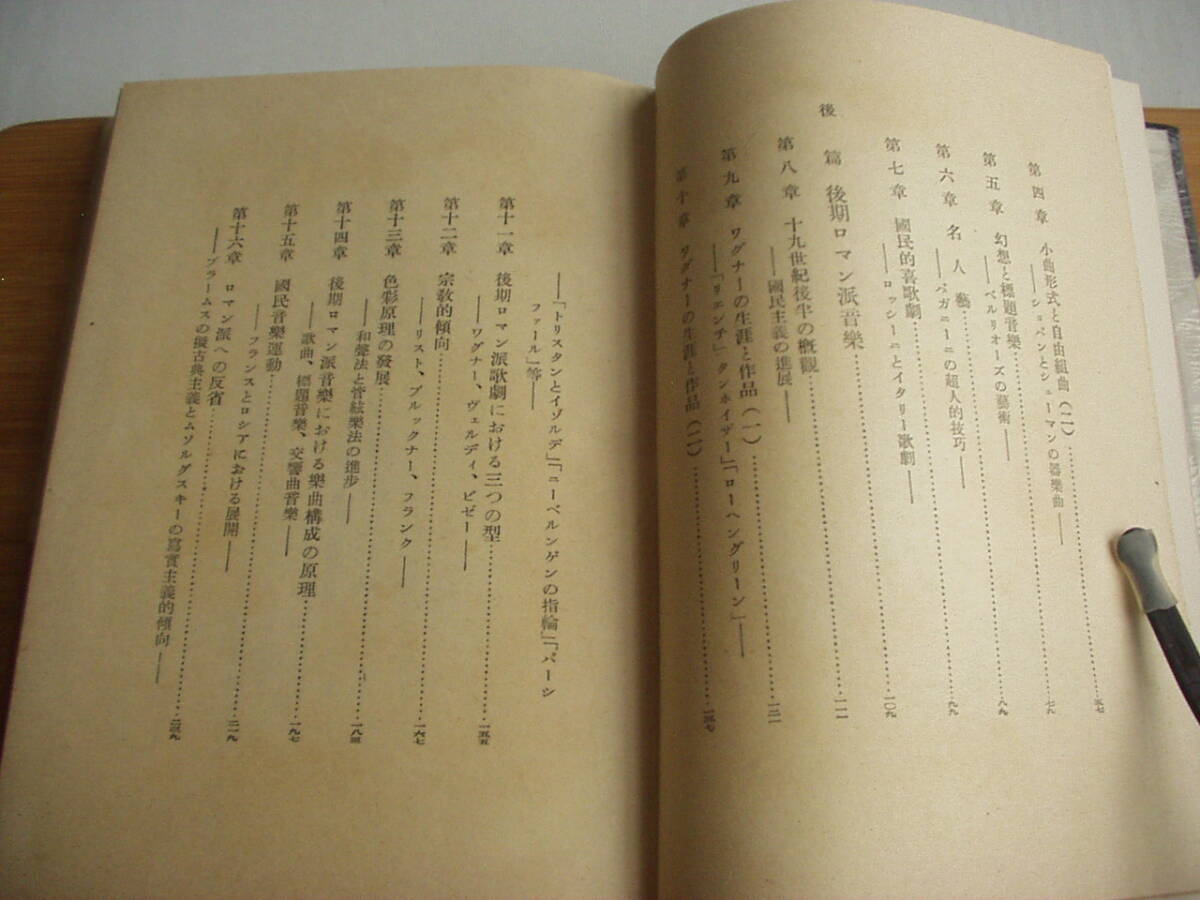 第四章 小曲形式と自由組曲(二)……五七
——ショパンとシューマンの器樂曲——
第五章 幻想と標題音樂……七九
——ベルリオーズの藝術——
第六章 名人藝……八九
——パガニーニの超人的技巧——
第七章 國民的喜歌劇……九九
——ロッシーニとイタリー歌劇——
後篇 後期ロマン派音樂……一〇九
第八章 十九世紀後半の槪觀……一一一
——國民主義の進展——
第九章 ワグナーの生涯と作品(一)……一二一
——「リエンチ」「タンホイザー」「ローヘングリーン」——
第十章 ワグナーの生涯と作品(二)……一三七
——「トリスタンとイゾルデ」「ニーベルンゲンの指輪」「パーシ
ファール」等——
第十一章 後期ロマン派歌劇における三つの型……一五五
——ワグナー、ヴェルディ、ビゼー——
第十二章 宗敎的傾向……一六七
——リスト、ブルックナー、フランク——
第十三章 色彩原理の發展……一八三
——和聲法と管絃樂法の進步——
第十四章 後期ロマン派音樂における樂曲構成の原理……一九七
——歌曲、標題音樂、交響曲音樂——
第十五章 國民音樂運動……二一九
——フランスとロシアにおける展開——
第十六章 ロマン派への反省……二三九
——ブラームスの擬古典主義とムソルグスキーの寫實主義的傾向——